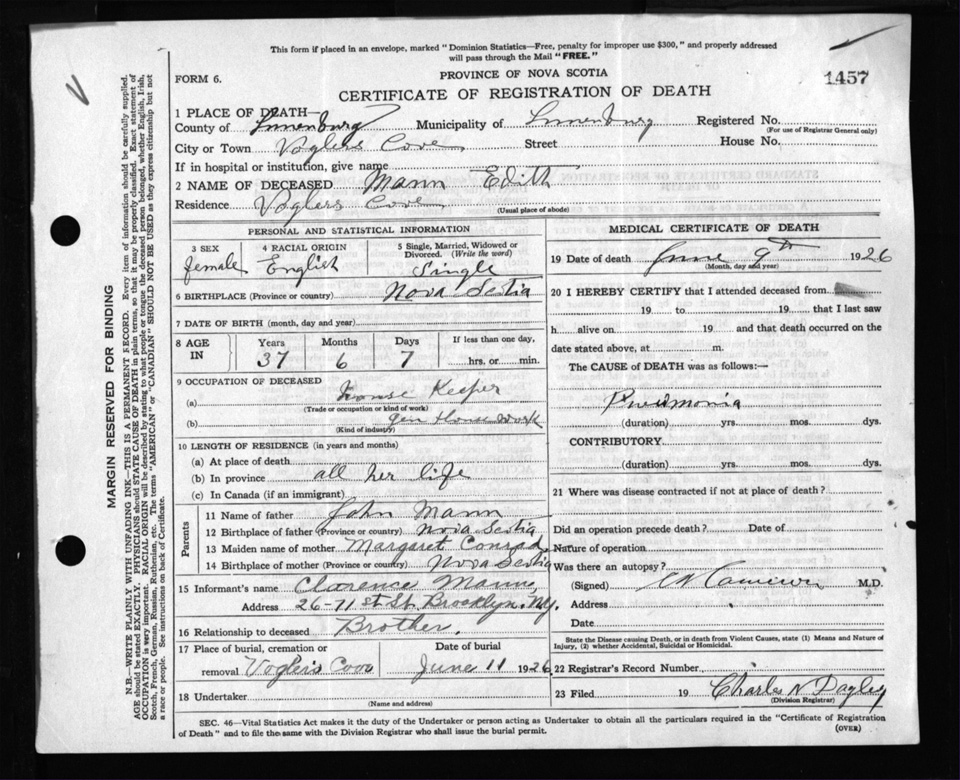 This form if placed in an envelope, marked "Dominion Statistics—Free, penalty for improper use $300," and properly addressed
will pass through the Mail "FREE."
FORM 6.
PROVINCE OF NOVA SCOTIA
1457
CERTIFICATE OF REGISTRATION OF DEATH
1 PLACE OF DEATH—
County of Lunenburg Municipality of Lunenburg Registered No.
(For use of Registrar General only)
City or Town Voglers Cove Street House No.
If in hospital or institution, give name
2 NAME OF DECEASED Mann Edith
Residence Voglers Cove
(Usual place of abode)
PERSONAL AND STATISTICAL INFORMATION
3 SEX 4 RACIAL ORIGIN 5 Single, Married, Widowed or
Divorced. (Write the word)
female English Single
6 BIRTHPLACE (Province or country) Nova Scotia
7 DATE OF BIRTH (month, day and year)
8 AGE IN Years Months Days If less than one day,
37 6 7 hrs. or min.
9 OCCUPATION OF DECEASED
(a) House Keeper
(Trade or occupation or kind of work)
(b) Gen House Work
(Kind of industry)
10 LENGTH OF RESIDENCE (in years and months)
(a) At place of death
(b) In province all her life
(c) In Canada (if an immigrant)
Parents
11 Name of father John Mann
12 Birthplace of father (Province or country) Nova Scotia
13 Maiden name of mother Margaret Conrad
14 Birthplace of mother (Province or country) Nova Scotia
15 Informant's name Clarence Mann
Address 26-71st St. Brocklyn, N.Y.
16 Relationship to deceased Brother
17 Place of burial, cremation or Date of burial
removal Voglers Cove June 11 1926
18 Undertaker
(Name and address)
MEDICAL CERTIFICATE OF DEATH
19 Date of death June 9th 1926
(Month, day and year)
20 I HEREBY CERTIFY that I attended deceased from
19 to 19 that I last saw
h alive on 19 and that death occurred on the
date stated above, at m.
The CAUSE of DEATH was as follows:—
Pneumonia
(duration) yrs. mos. dys.
CONTRIBUTORY
(duration) yrs. mos. dys.
21 Where was disease contracted if not at place of death?
Did an operation precede death? Date of
Nature of operation
Was there an autopsy?
(Signed) Cameron M.D.
Address
Date
State the Disease causing Death, or in death from Violent Causes, state (1) Means and Nature of
Injury, (2) whether Accidental, Suicidal or Homicidal.
22 Registrar's Record Number
23 Filed 19 Charles N Dagley
(Division Registrar)
SEC. 46—Vital Statistics Act makes it the duty of the Undertaker or person acting as Undertaker to obtain all the particulars required in the "Certificate of Registration
of Death" and to file the same with the Division Registrar who shall issue the burial permit.
(OVER)
MARGIN RESERVED FOR BINDING
N.B.—WRITE PLAINLY WITH UNFADING INK—THIS IS A PERMANENT RECORD. Every item of information should be carefully supplied.
AGE should be stated EXACTLY. PHYSICIANS should STATE CAUSE OF DEATH in plain terms, so that it may be properly classified. Exact statement of
OCCUPATION is very important. RACIAL ORIGIN will be described by stating to what people or tongue the deceased person belonged, whether English, Irish,
Scotch, French, German, Russian, Ruthenian, etc. The terms "AMERICAN" or "CANADIAN" SHOULD NOT BE USED as they express citizenship but not
a race or people. See instructions on back of Certificate.